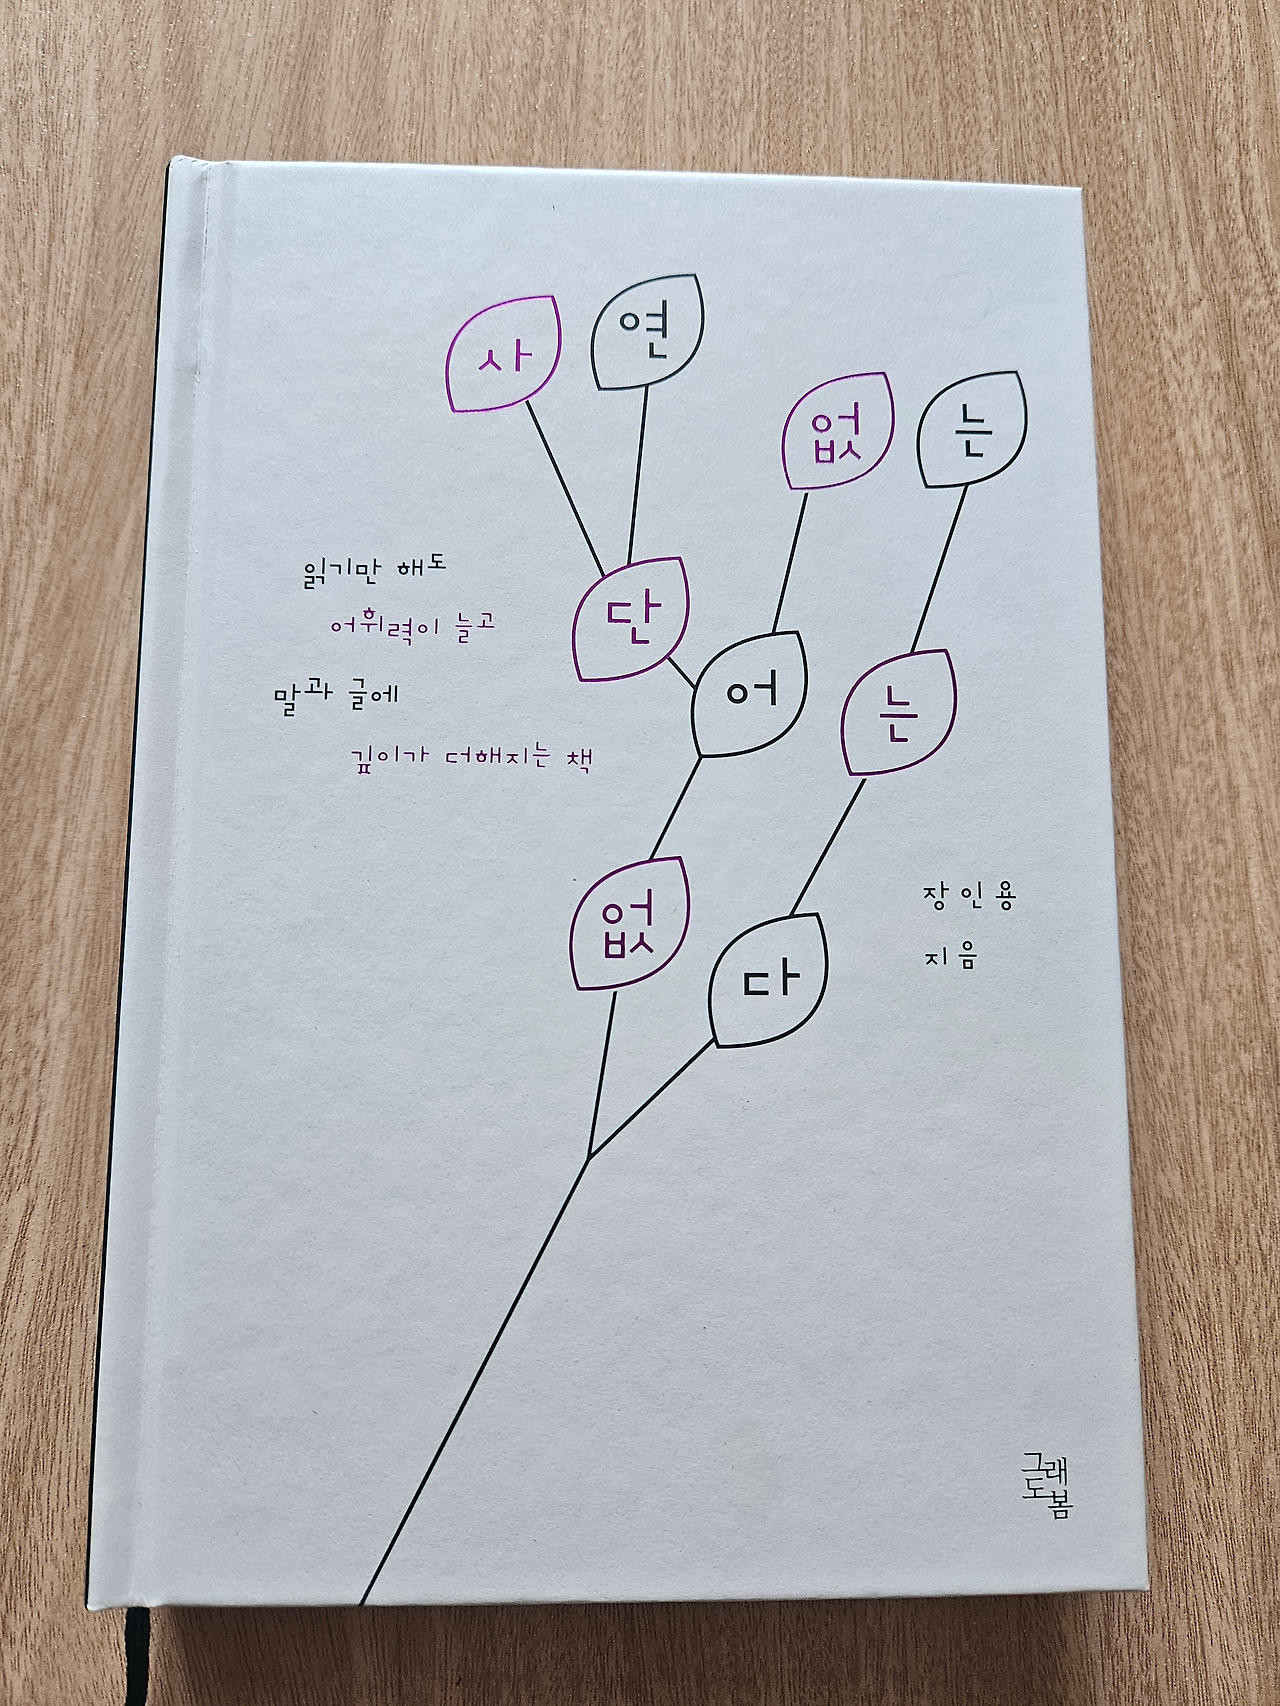 사연
없는
단어는
없다
읽기만 해도
어휘력이 늘고
말과 글에
깊이가 더해지는 책
장인용
지음
그래
도봄